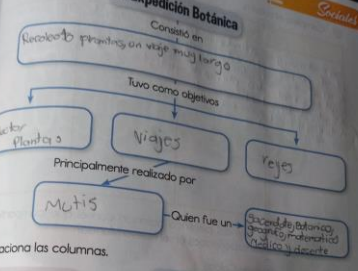 Expedición Botánica
Sociales
Consistió en
Recolecto plantas, un viaje muy largo
Tuvo como objetivos
Plantas
Viajes
reyes
Principalmente realizado por
Mutis
Quien fue un
Sacerdote, Botanico,
geografo, matematico
Medico y docente
las columnas.